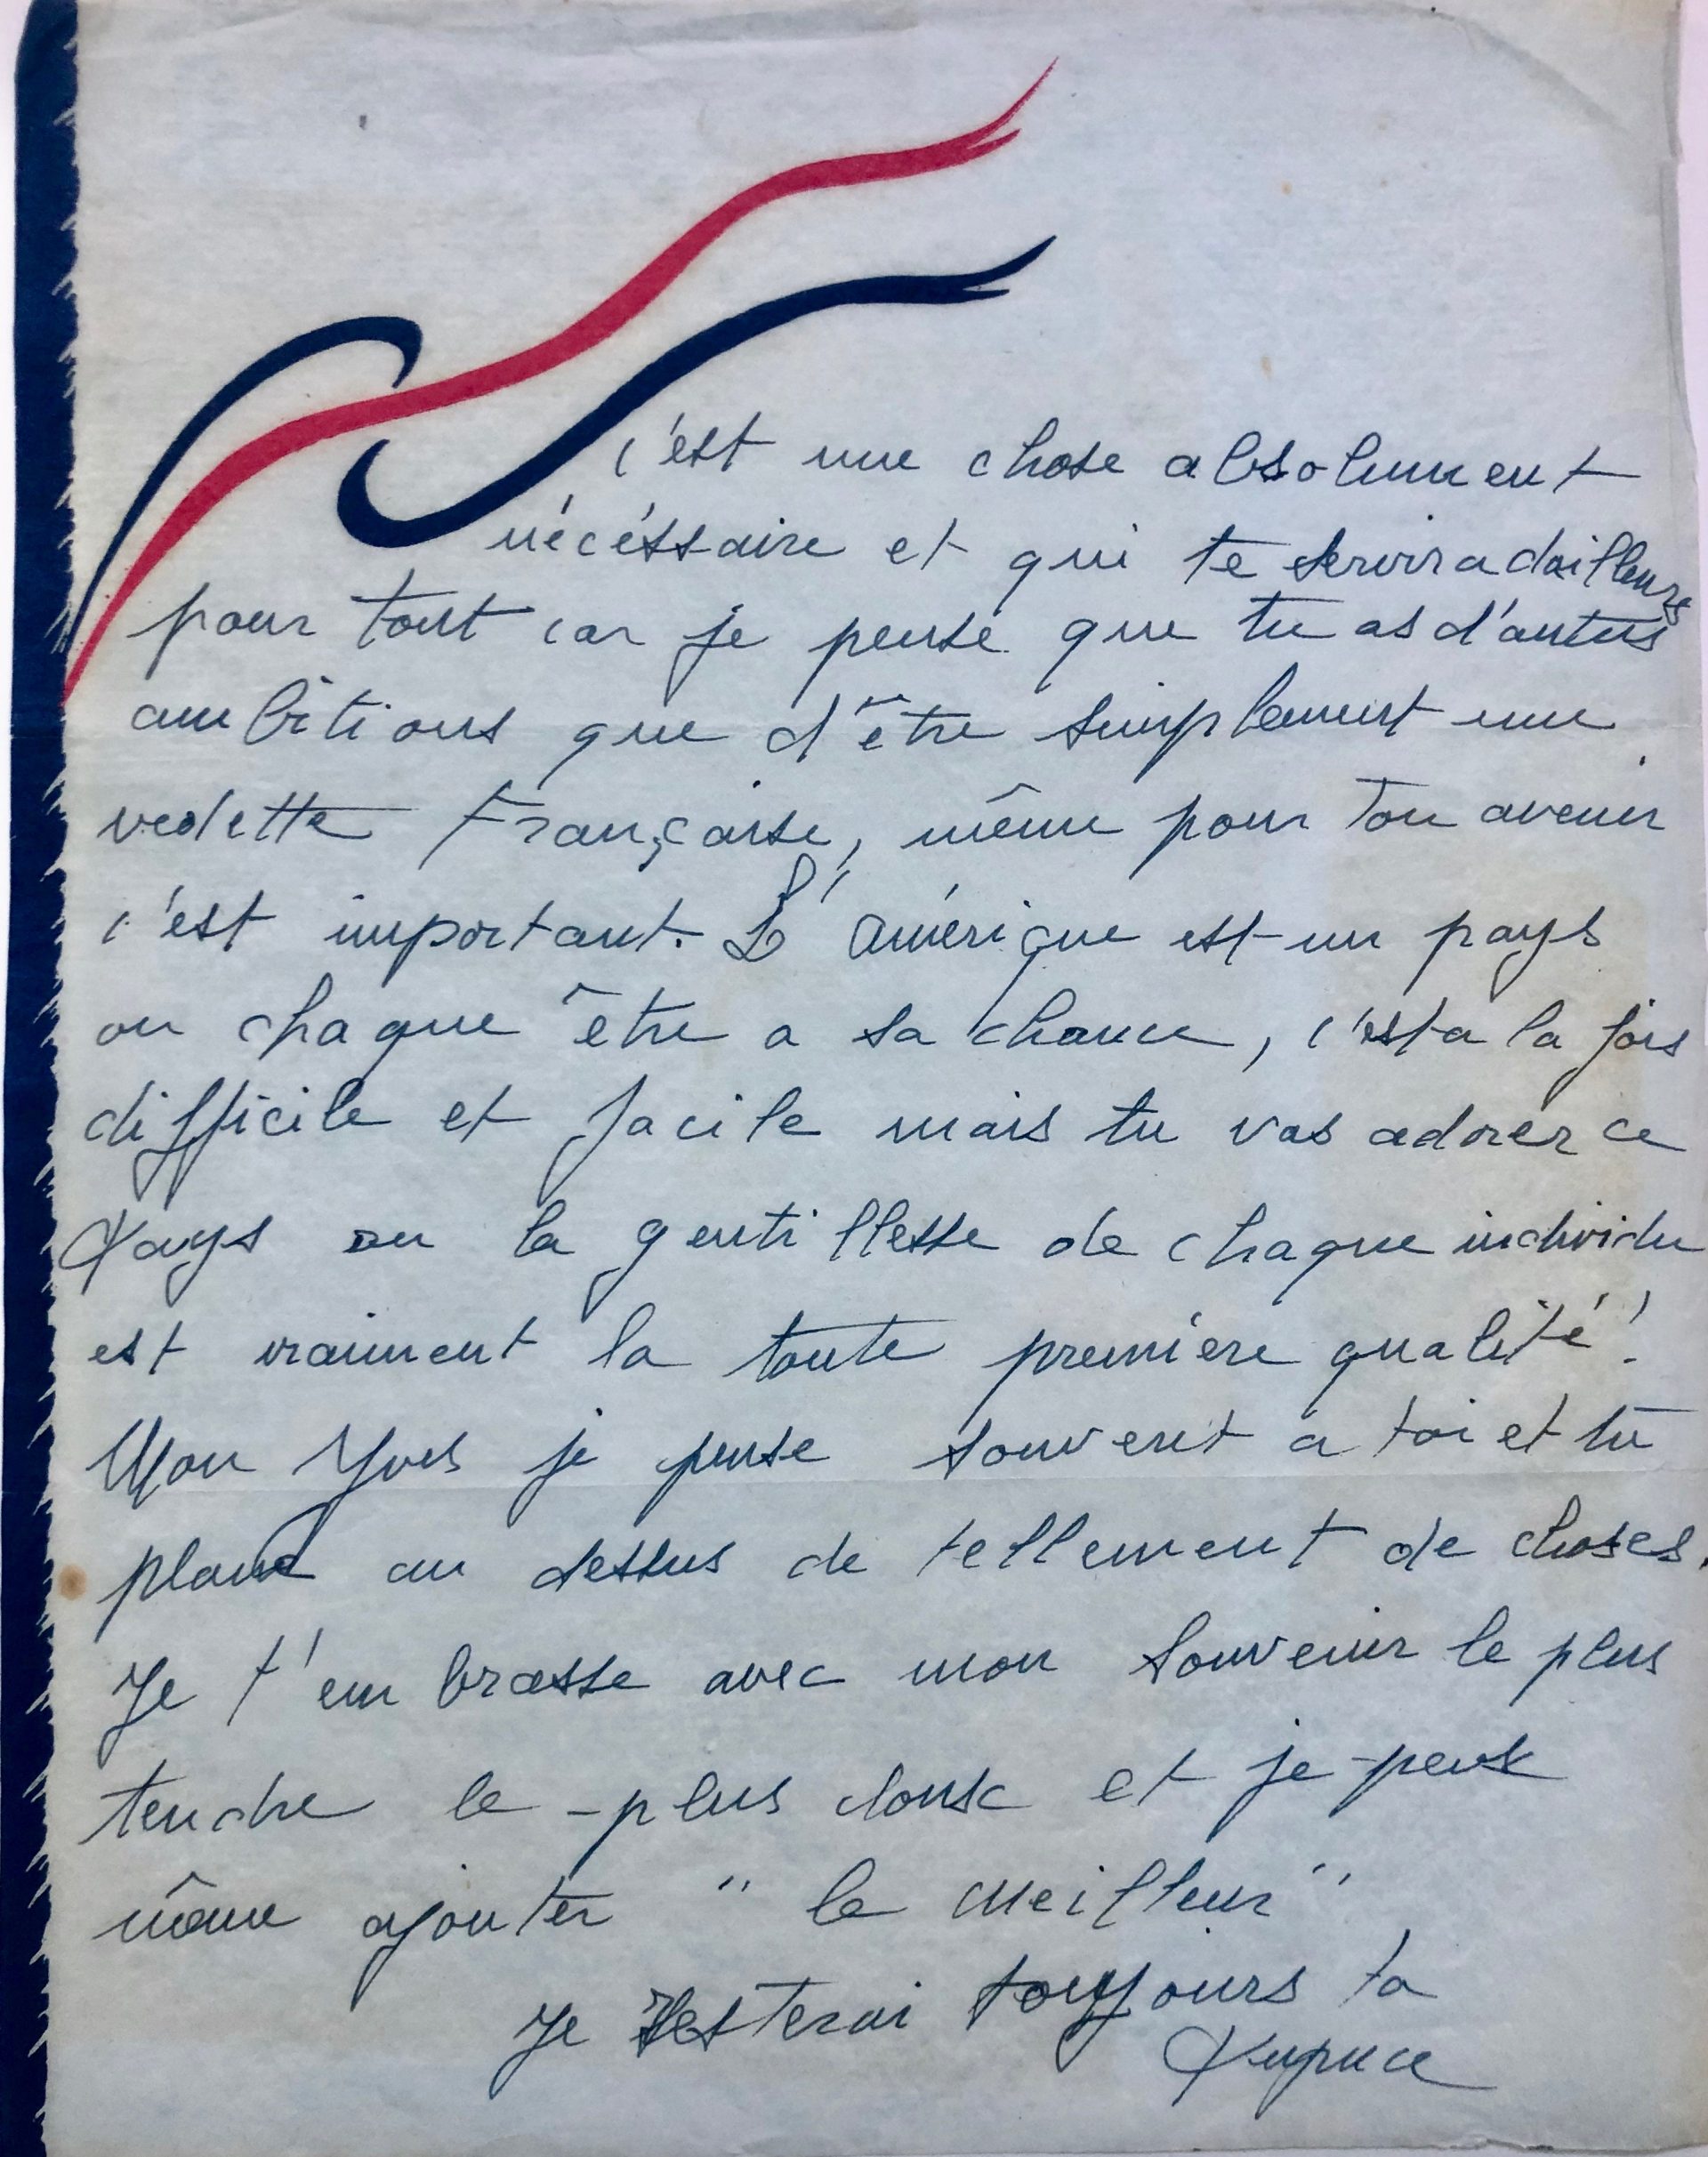 c'est une chose absolument
nécéssaire et qui te servira dailleurs
pour tout car je pense que tu as d'autres
ambitions que d'être simplement une
vedette Française, même pour ton avenir
c'est important. L'amérique est un pays
ou chaque être a sa chance, c'est a la fois
difficile et facile mais tu vas adorer ce
Pays ou la gentillesse de chaque individu
est vraiment la toute première qualité!
Mon Yves je pense souvent a toi et tu
plane au dessus de tellement de choses.
Je t'embrasse avec mon souvenir le plus
tendre le plus doux et je peux
même ajouter "le meilleur"
Je resterai toujours ta